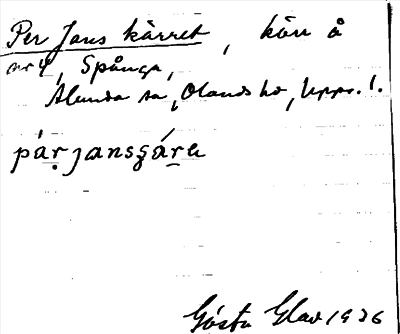 Per Jans kärret, kärr å
nr 4, Spånga,
Alunda sn, Olands hd, Upps. l.
pár jansʒárə
Gösta Glav 1936